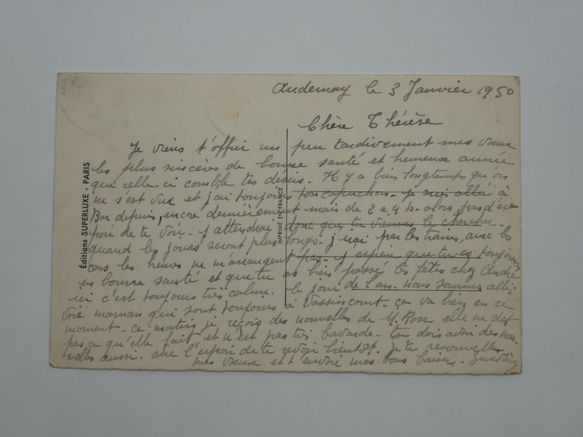 Andernay le 3 Janvier 1950
Chère Thérèse
Je viens t'offrir un peu tardivement mes vœux
les plus sincères de bonne santé et heureuse année
que celle-ci comble tes désirs. Il y a bien longtemps qu'on
ne s'est vue et j'ai toujours ton capuchon. je suis allée à
Bar depuis, encore dernièrement mais de 2 a 4 h. alors jusqu'à
de te voir. J'attendrai donc que tu viennes le chercher
quand les jours seront plus longs. J'irai par les trains, avec les
cars les heures ne m'arrangent pas. J'espère que tu es toujours
en bonne santé et que tu as bien passé les fêtes chez André
ici c'est toujours très calme. le jour de l'an nous sommes allés
voir maman qui sont toujours à Vassincourt. ça va bien en ce
moment. ce matin je reçois des nouvelles de M. Rose elle ne dit
pas ce qu'elle fait et n'est pas très bavarde. toi dois avoir des nou
velles aussi. avec l'espoir de te revoir bientôt. Je te renouvelle
mes vœux et envoie mes bons baisers.
Editions SUPERLUXE - PARIS